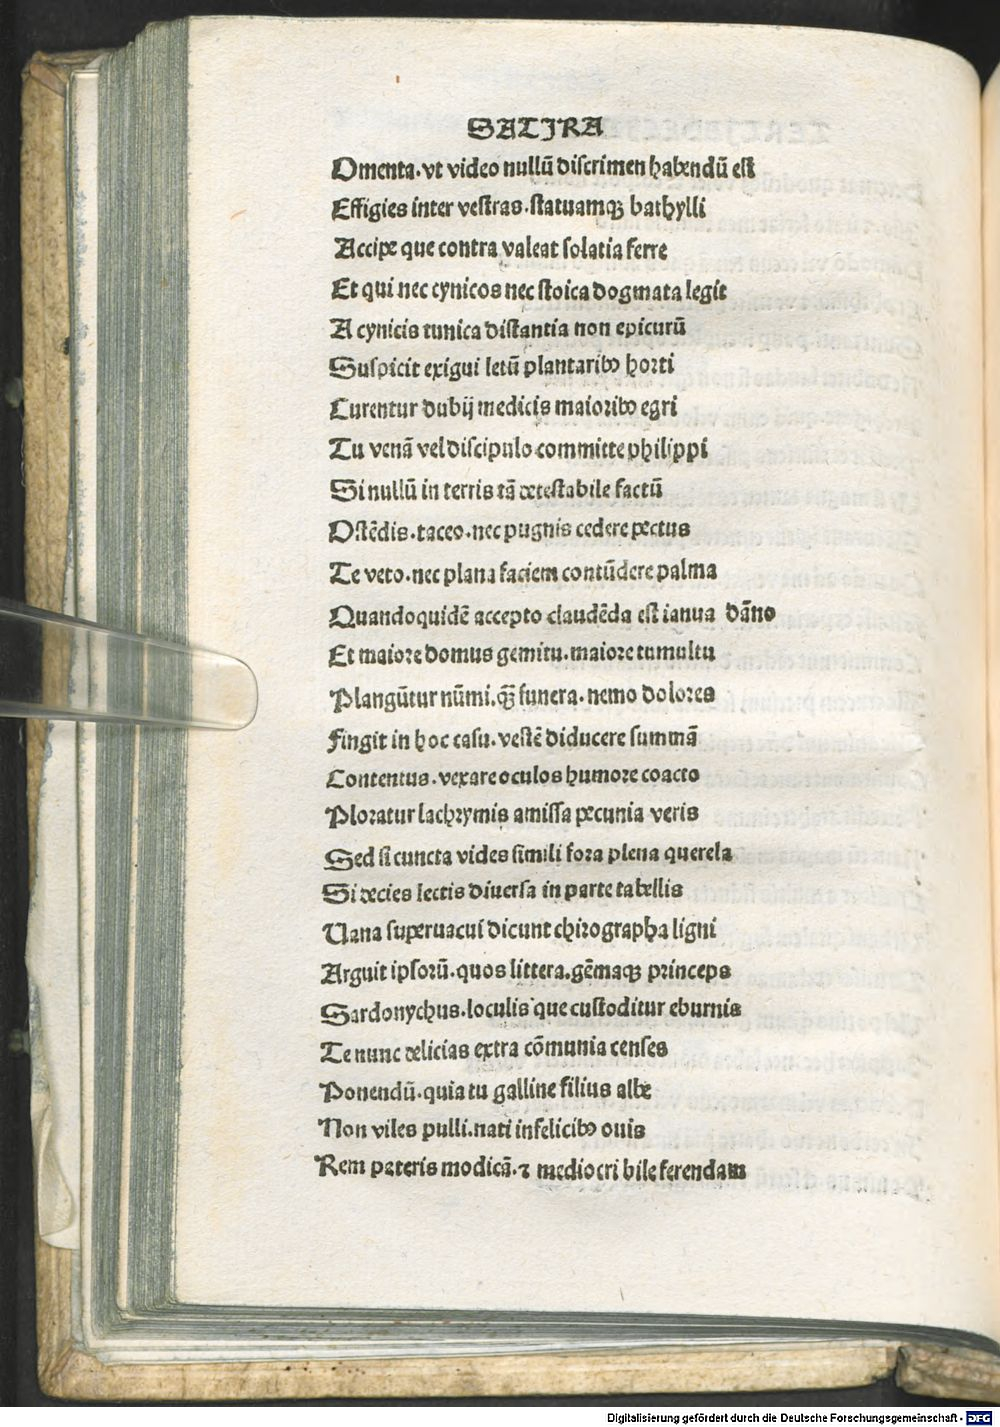 SATIRA
Omenta·vt video nullũ discrimen habendũ est
Effigies inter vestras·statuamqꝫ bathylli
Accipe que contra valeat solatia ferre
Et qui nec cynicos nec stoica dogmata legit
A cynicis tunica distantia non epicurũ
Suspicit exigui letũ plantaribꝰ horti
Curentur dubij medicis maioribꝰ egri
Tu venã vel discipulo committe philippi
Si nullũ in terris tã detestabile factũ
Ostẽdis·taceo·nec pugnis cedere pectus
Te veto·nec plana faciem contũdere palma
Quandoquidẽ accepto claudẽda est ianua dãno
Et maiore domus gemitu·maiore tumultu
Plangũtur nũmi·qꝫ̃ funera·nemo dolores
Fingit in hoc casu·vestẽ diducere summã
Contentus·vexare oculos humore coacto
Ploratur lachrymis amissa pecunia veris
Sed si cuncta vides simili fora plena querela
Si decies lectis diuersa in parte tabellis
Uana superuacui dicunt chirographa ligni
Arguit ipsorũ·quos littera·gẽmaqꝫ princeps
Sardonychus·loculis que custoditur eburnis
Te nunc delicias extra cõmunia censes
Ponendũ·quia tu galline filius albe
Non viles pulli·nati infelicibꝰ ouis
Rem pateris modicã·⁊ mediocri bile ferendam
Digitalisierung gefördert durch die Deutsche Forschungsgemeinschaft - DFG